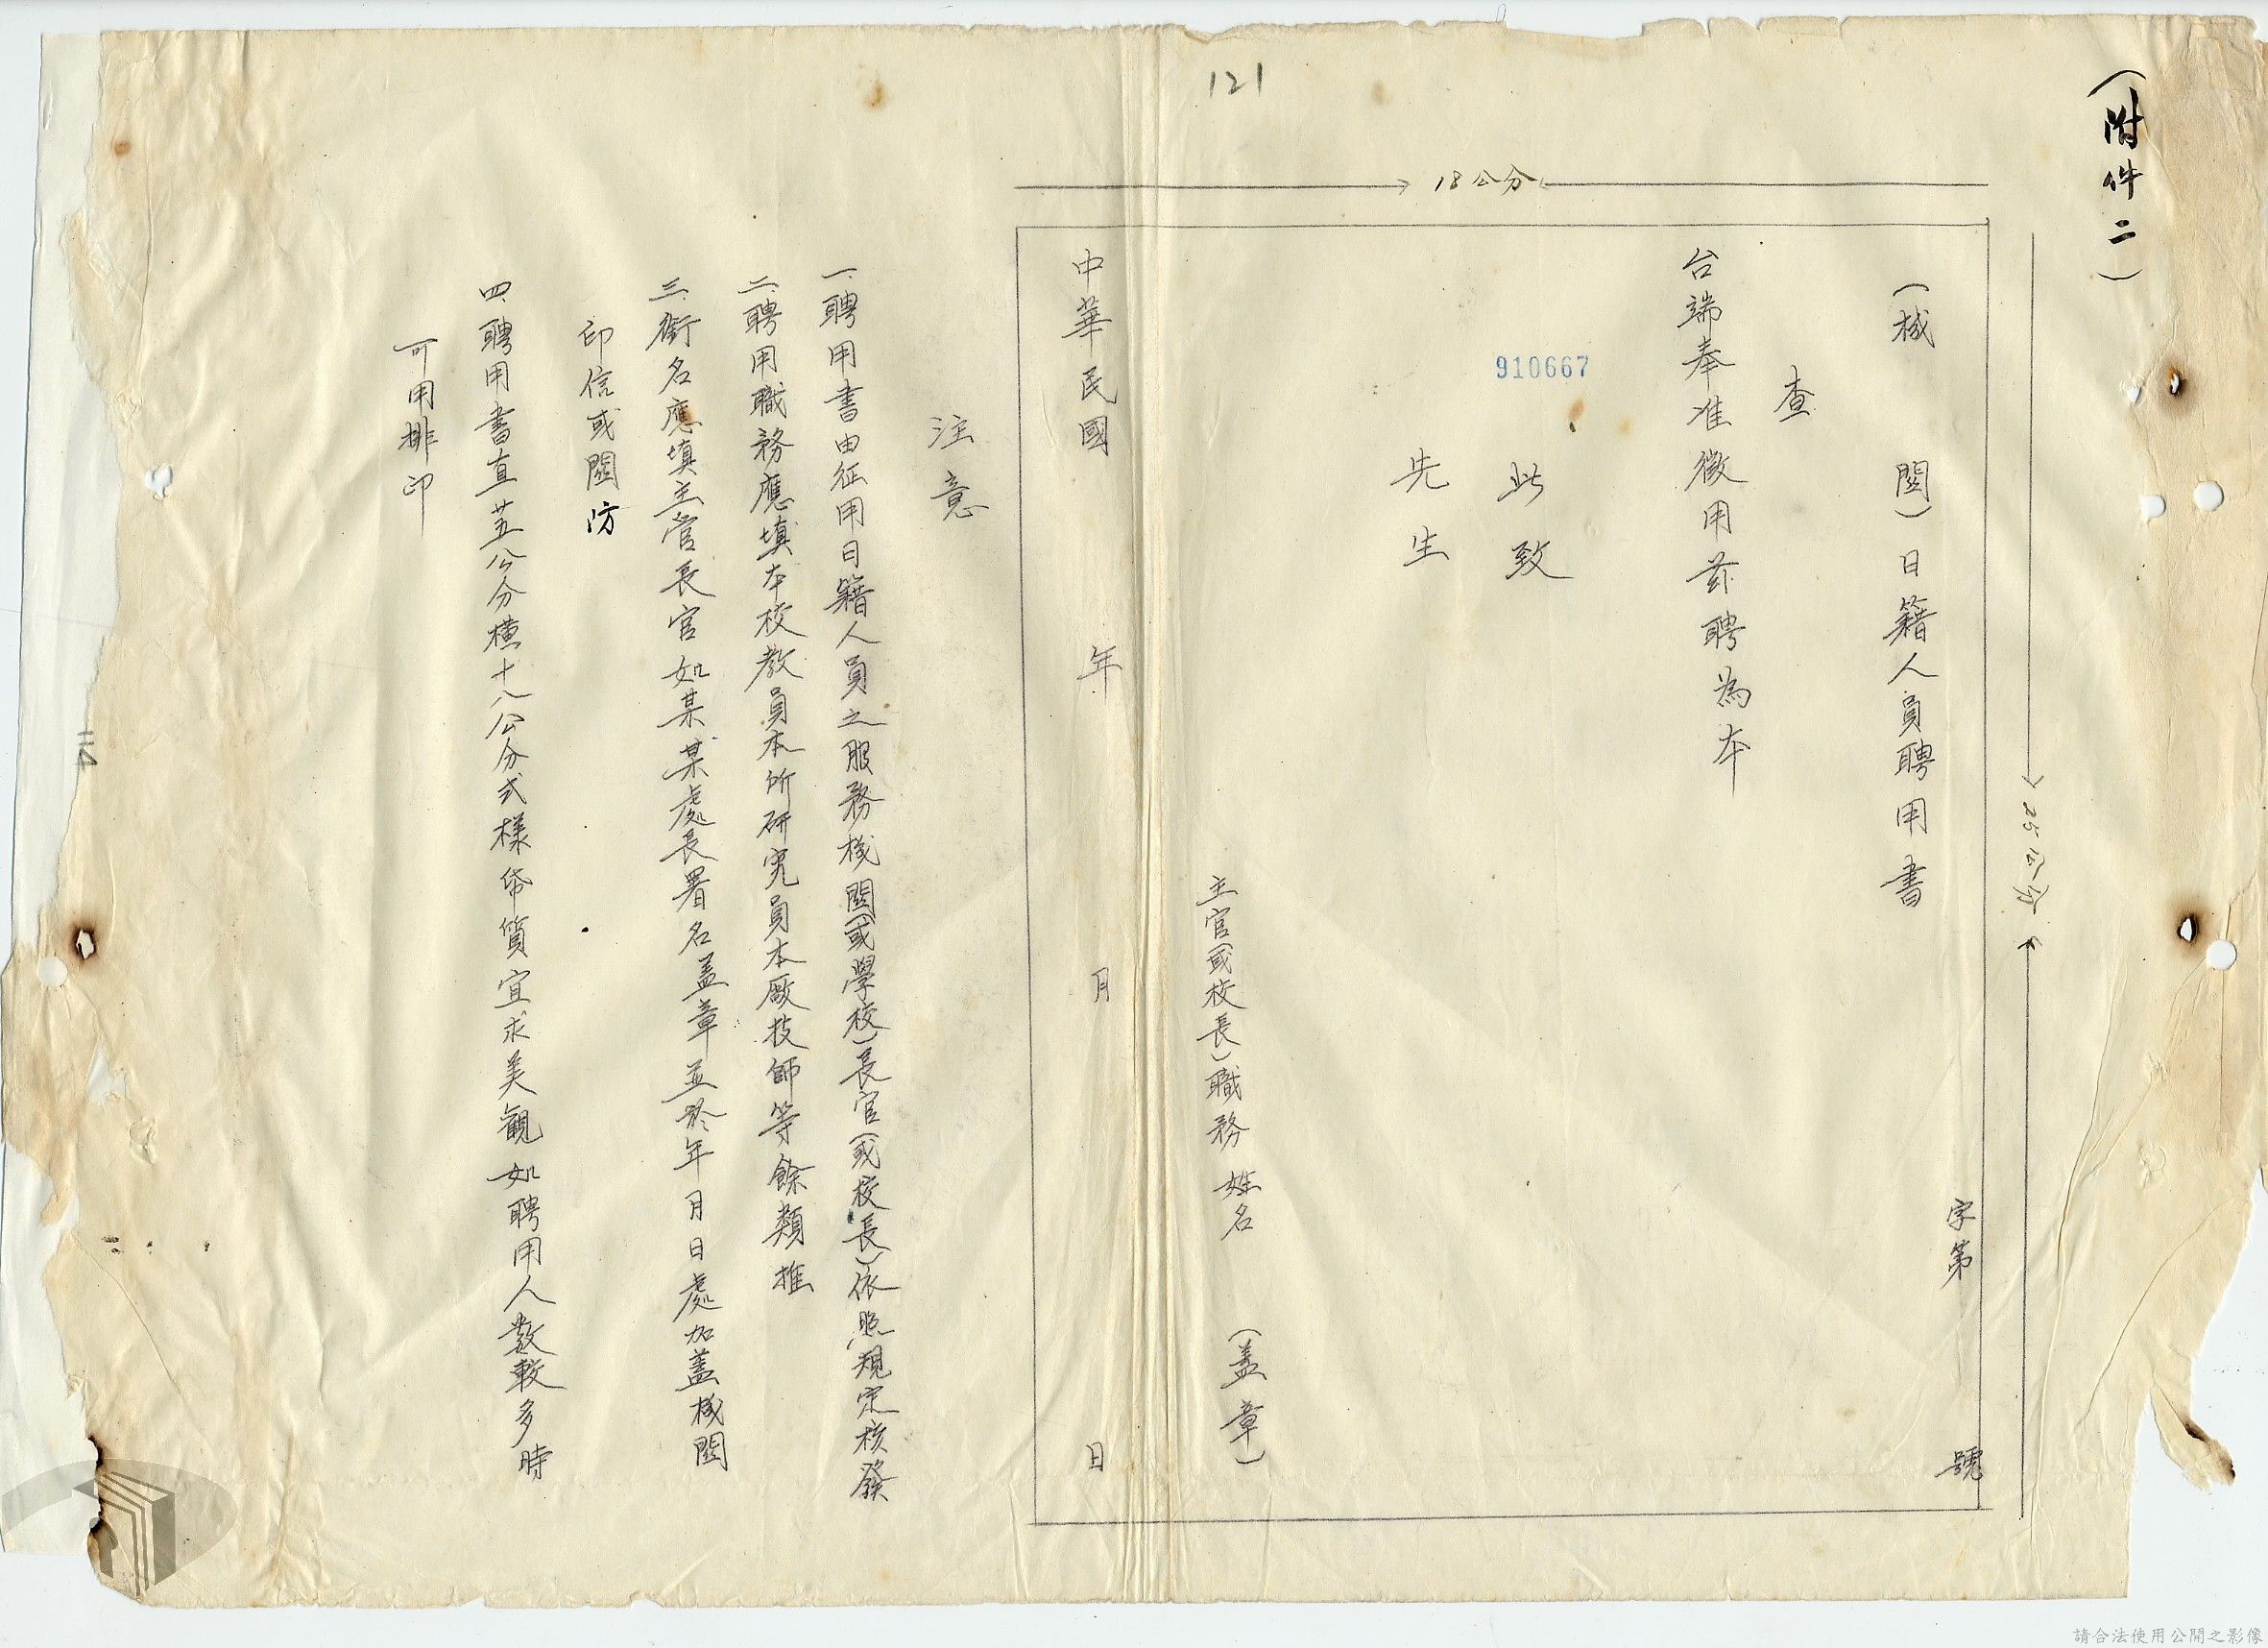 (附件二)
25公分
18公分
121
字第 號
(機 關)日籍人員聘用書
查
台端奉准徵用茲聘為本
910667
此致
先生
主官(或校長)職務 姓名 (蓋章)
中華民國 年 月 日
注意
一、聘用書由征用日籍人員之服務機關(或學校)長官(或校長)依照規定核發
二、聘用職務應填本校教員本所研究員本廠技師等餘類推
三、銜名應填主管長官如某某處長署名蓋章並於年月日處加蓋機關
印信或關防
四、聘用書直廿五公分橫十八公分式樣帋質宜求美觀如聘用人數較多時
可用排印
請合法使用公開之影像